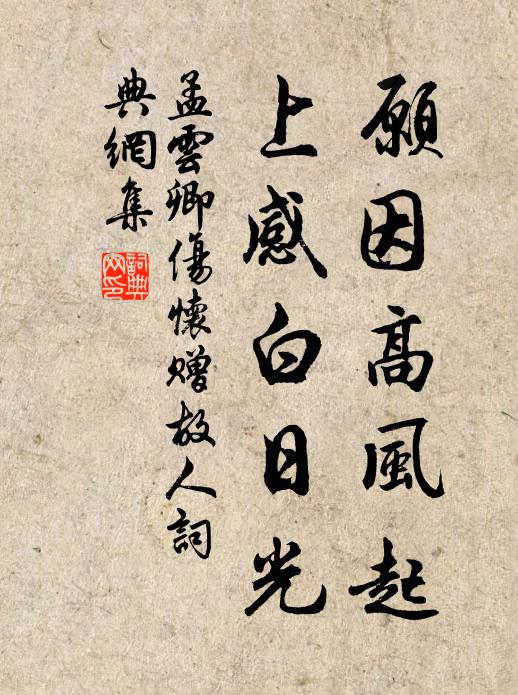 願因高風起
上感白日光
孟雲卿傷懷赠故人詞
典網集
詞典
网印